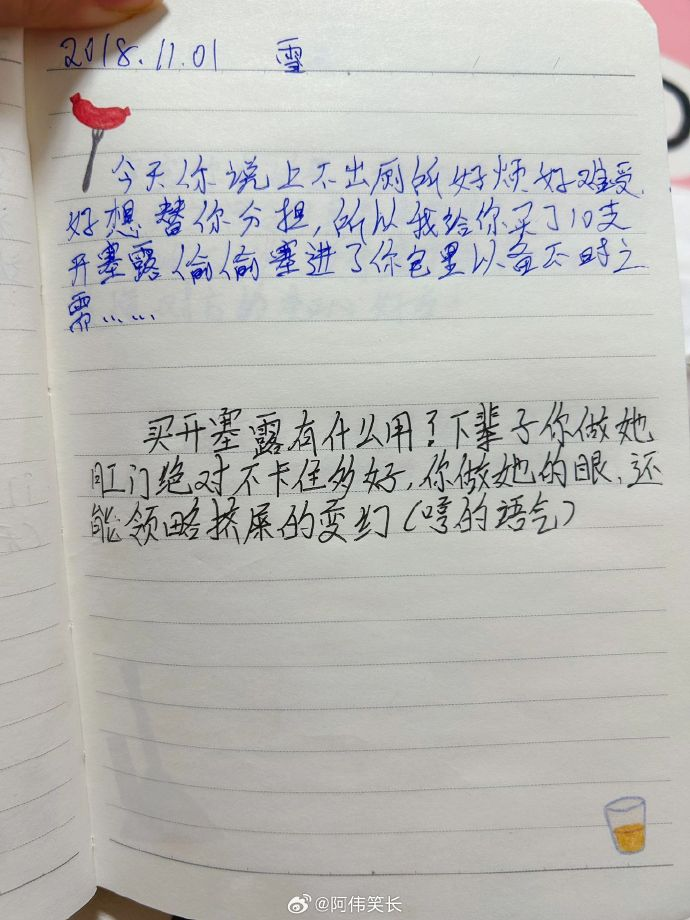 2018.11.01 雪
今天你说上不出厕所好烦好难受,
好想替你分担,所以我给你买了10支
开塞露偷偷塞进了你包里以备不时之
需……
买开塞露有什么用?下辈子你做她
肛门绝对不卡住多好,你做她的眼,还
能领略挤屎的变幻(唱的语气)
@阿伟笑长